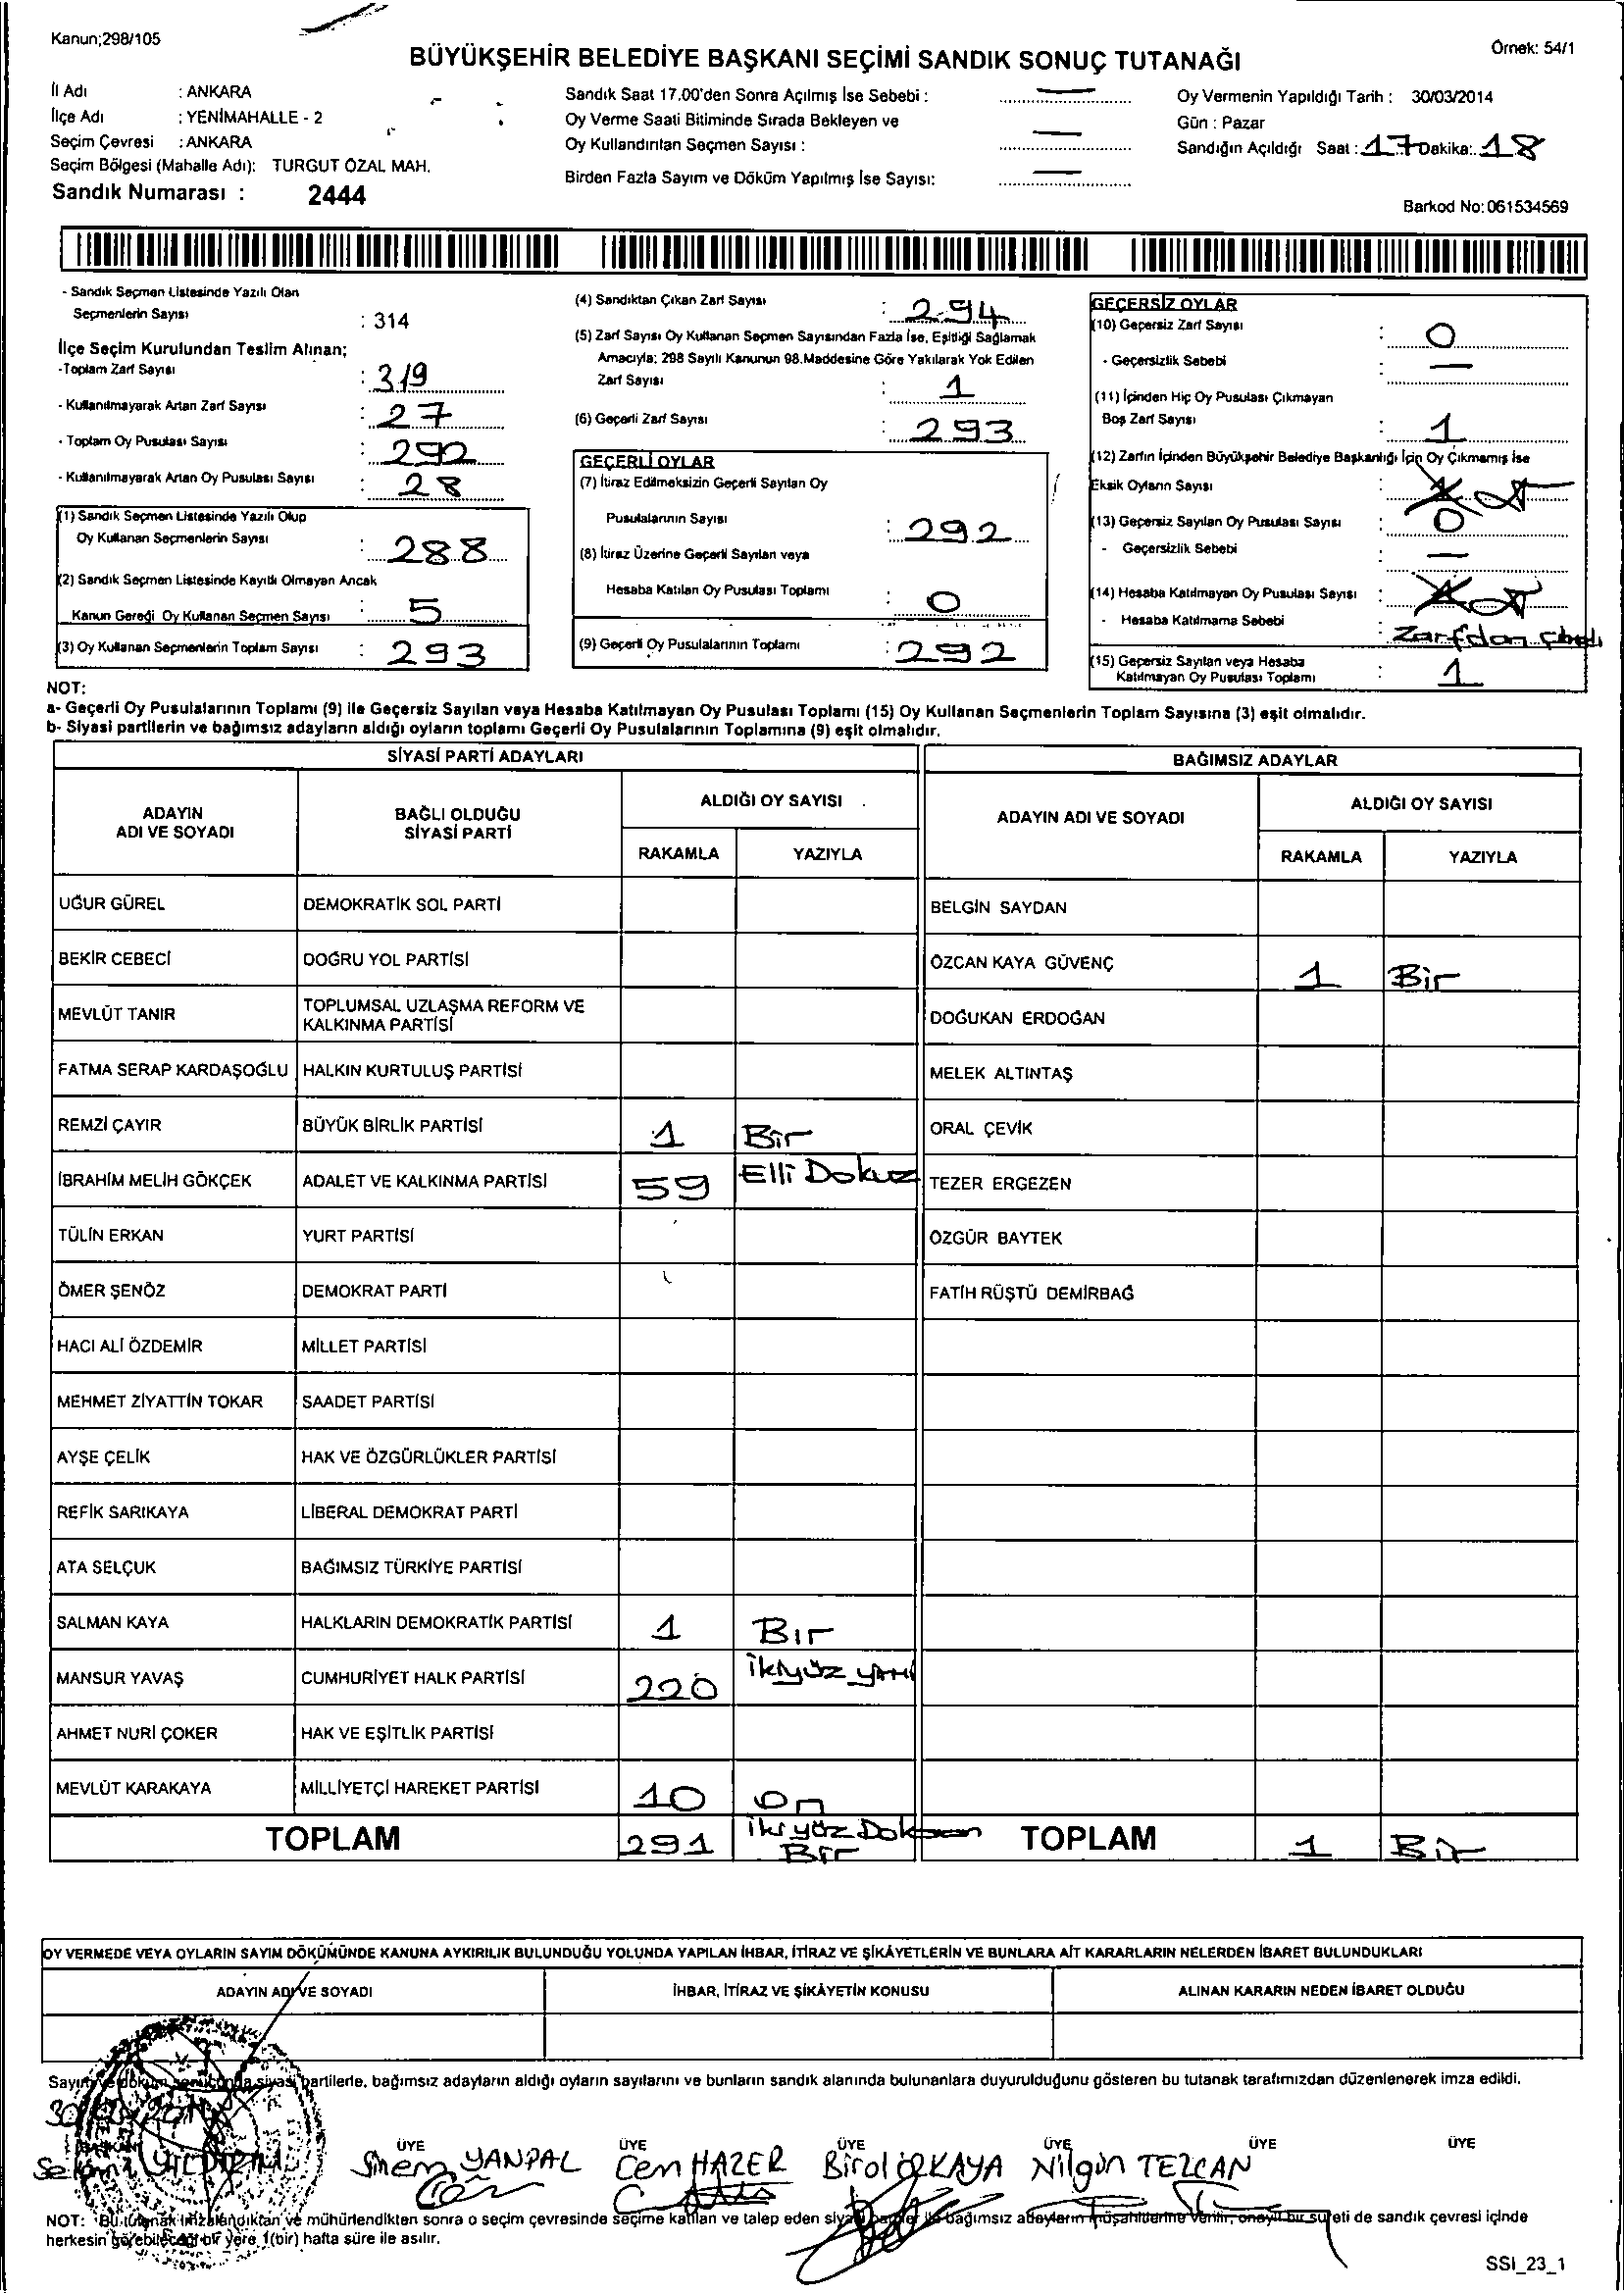 Kanun;298/105
Örnek: 54/1
BÜYÜKŞEHİR BELEDİYE BAŞKANI SEÇİMİ SANDIK SONUÇ TUTANAĞI
İl Adı : ANKARA
İlçe Adı : YENİMAHALLE - 2
Seçim Çevresi : ANKARA
Seçim Bölgesi (Mahalle Adı): TURGUT ÖZAL MAH.
Sandık Numarası : 2444
Sandık Saat 17.00'den Sonra Açılmış İse Sebebi : —
Oy Verme Saati Bitiminde Sırada Bekleyen ve
Oy Kullandırılan Seçmen Sayısı : —
Birden Fazla Sayım ve Döküm Yapılmış İse Sayısı: —
Oy Vermenin Yapıldığı Tarih : 30/03/2014
Gün : Pazar
Sandığın Açıldığı Saat : 17 Dakika: 18
Barkod No: 061534569
- Sandık Seçmen Listesinde Yazılı Olan
Seçmenlerin Sayısı : 314
İlçe Seçim Kurulundan Teslim Alınan;
-Toplam Zarf Sayısı : 319
- Kullanılmayarak Artan Zarf Sayısı : 27
- Toplam Oy Pusulası Sayısı : 290
- Kullanılmayarak Artan Oy Pusulası Sayısı : 28
(1) Sandık Seçmen Listesinde Yazılı Olup
Oy Kullanan Seçmenlerin Sayısı : 288
(2) Sandık Seçmen Listesinde Kayıtlı Olmayan Ancak
Kanun Gereği Oy Kullanan Seçmen Sayısı : 5
(3) Oy Kullanan Seçmenlerin Toplam Sayısı : 293
(4) Sandıktan Çıkan Zarf Sayısı : 294
(5) Zarf Sayısı Oy Kullanan Seçmen Sayısından Fazla İse, Eşitliği Sağlamak
Amacıyla; 298 Sayılı Kanunun 98.Maddesine Göre Yakılarak Yok Edilen
Zarf Sayısı : 1
(6) Geçerli Zarf Sayısı : 293
GEÇERLİ OYLAR
(7) İtiraz Edilmeksizin Geçerli Sayılan Oy
Pusulalarının Sayısı : 292
(8) İtiraz Üzerine Geçerli Sayılan veya
Hesaba Katılan Oy Pusulası Toplamı : 0
(9) Geçerli Oy Pusulalarının Toplamı : 292
GEÇERSİZ OYLAR
(10) Geçersiz Zarf Sayısı : 0
- Geçersizlik Sebebi : —
(11) İçinden Hiç Oy Pusulası Çıkmayan
Boş Zarf Sayısı : 1
(12) Zarfın İçinden Büyükşehir Belediye Başkanlığı İçin Oy Çıkmamış İse
Eksik Oyların Sayısı :
(13) Geçersiz Sayılan Oy Pusulası Sayısı : 0
- Geçersizlik Sebebi : —
(14) Hesaba Katılmayan Oy Pusulası Sayısı :
- Hesaba Katılmama Sebebi : Zarfdan
(15) Geçersiz Sayılan veya Hesaba
Katılmayan Oy Pusulası Toplamı : 1
NOT:
a- Geçerli Oy Pusulalarının Toplamı (9) ile Geçersiz Sayılan veya Hesaba Katılmayan Oy Pusulası Toplamı (15) Oy Kullanan Seçmenlerin Toplam Sayısına (3) eşit olmalıdır.
b- Siyasi partilerin ve bağımsız adayların aldığı oyların toplamı Geçerli Oy Pusulalarının Toplamına (9) eşit olmalıdır.
SİYASİ PARTİ ADAYLARI
ADAYIN ADI VE SOYADI
BAĞLI OLDUĞU SİYASİ PARTİ
ALDIĞI OY SAYISI
RAKAMLA YAZIYLA
UĞUR GÜREL DEMOKRATİK SOL PARTİ
BEKİR CEBECİ DOĞRU YOL PARTİSİ
MEVLÜT TANIR TOPLUMSAL UZLAŞMA REFORM VE KALKINMA PARTİSİ
FATMA SERAP KARDAŞOĞLU HALKIN KURTULUŞ PARTİSİ
REMZİ ÇAYIR BÜYÜK BİRLİK PARTİSİ 1 Bir
İBRAHİM MELİH GÖKÇEK ADALET VE KALKINMA PARTİSİ 59 Elli Dokuz
TÜLİN ERKAN YURT PARTİSİ
ÖMER ŞENÖZ DEMOKRAT PARTİ
HACI ALİ ÖZDEMİR MİLLET PARTİSİ
MEHMET ZİYATTİN TOKAR SAADET PARTİSİ
AYŞE ÇELİK HAK VE ÖZGÜRLÜKLER PARTİSİ
REFİK SARIKAYA LİBERAL DEMOKRAT PARTİ
ATA SELÇUK BAĞIMSIZ TÜRKİYE PARTİSİ
SALMAN KAYA HALKLARIN DEMOKRATİK PARTİSİ 1 Bir
MANSUR YAVAŞ CUMHURİYET HALK PARTİSİ 220 ikiyüz
AHMET NURİ ÇOKER HAK VE EŞİTLİK PARTİSİ
MEVLÜT KARAKAYA MİLLİYETÇİ HAREKET PARTİSİ 10 on
TOPLAM 291 ikiyüz Doksan Bir
BAĞIMSIZ ADAYLAR
ADAYIN ADI VE SOYADI
ALDIĞI OY SAYISI
RAKAMLA YAZIYLA
BELGİN SAYDAN
ÖZCAN KAYA GÜVENÇ 1 Bir
DOĞUKAN ERDOĞAN
MELEK ALTINTAŞ
ORAL ÇEVİK
TEZER ERGEZEN
ÖZGÜR BAYTEK
FATİH RÜŞTÜ DEMİRBAĞ
TOPLAM 1 Bir
OY VERMEDE VEYA OYLARIN SAYIM DÖKÜMÜNDE KANUNA AYKIRILIK BULUNDUĞU YOLUNDA YAPILAN İHBAR, İTİRAZ VE ŞİKÂYETLERİN VE BUNLARA AİT KARARLARIN NELERDEN İBARET BULUNDUKLARI
ADAYIN ADI VE SOYADI
İHBAR, İTİRAZ VE ŞİKÂYETİN KONUSU
ALINAN KARARIN NEDEN İBARET OLDUĞU
Sayım ve döküm sonucunda siyasi partilerle, bağımsız adayların aldığı oyların sayılarını ve bunların sandık alanında bulunanlara duyurulduğunu gösteren bu tutanak tarafımızdan düzenlenerek imza edildi.
BAŞKAN ÜYE ÜYE ÜYE ÜYE ÜYE ÜYE
YILDIRIM Sinem YANPAL Cem HAZER Birol ÖZKAYA Nilgün TEZCAN
NOT: Bu tutanak imzalandıktan ve mühürlendikten sonra o seçim çevresinde seçime katılan ve talep eden siyasi partiler ile bağımsız adayların müşahitlerine verilir, onaylı bir sureti de sandık çevresi içinde
herkesin görebileceği bir yere 1(bir) hafta süre ile asılır.
SSI_23_1